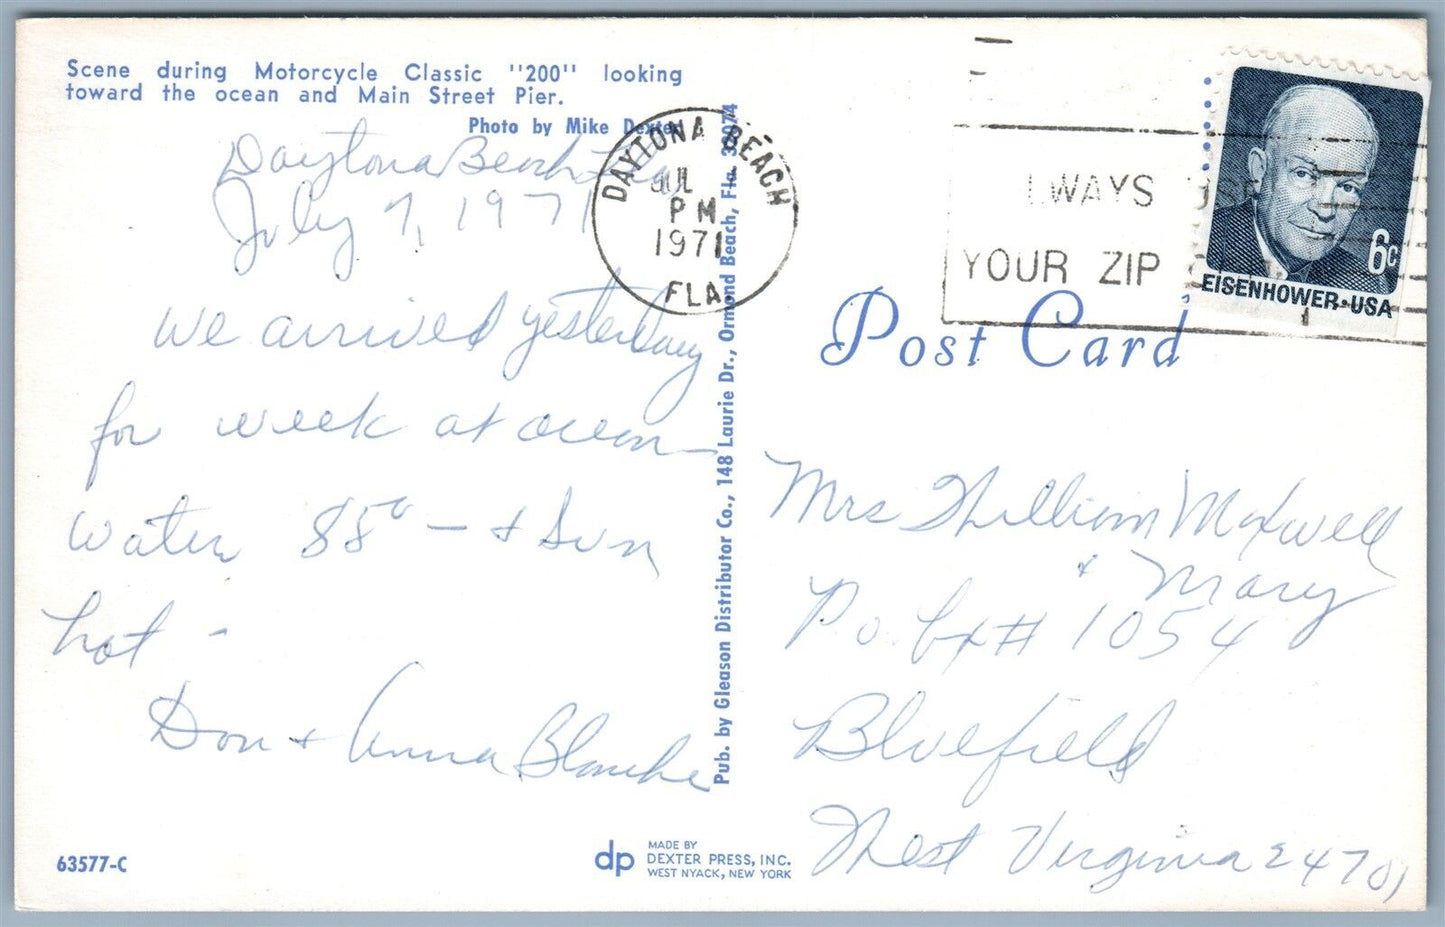 Scene during Motorcycle Classic "200" looking
toward the ocean and Main Street Pier.
Photo by Mike Dexter
Daytona Beach Fla
July 7, 1971
We arrived yesterday
for week at ocean
Water 88° — + Sun
hot -
Don + Anna Blanche
63577-C
Pub. by Gleason Distributor Co., 148 Laurie Dr., Ormond Beach, Fla. 32074
dp
MADE BY
DEXTER PRESS, INC.
WEST NYACK, NEW YORK
DAYTONA BEACH
JUL
PM
1971
FLA.
LWAYS USE
YOUR ZIP
6c
EISENHOWER·USA
Post Card
Mrs William Maxwell
+ Mary
P.o. bx # 1054
Bluefield
West Virginia 24701